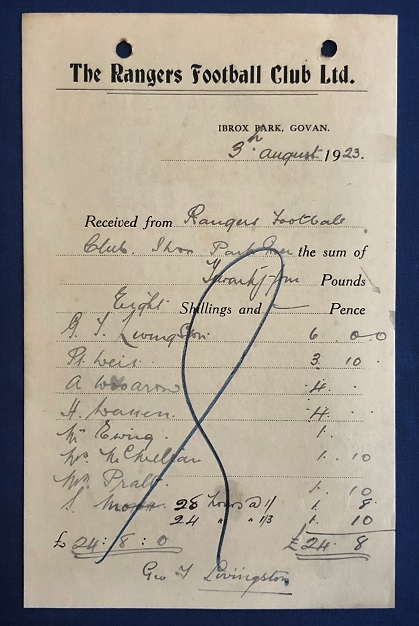 The Rangers Football Club Ltd.
IBROX PARK, GOVAN.
3th august 1923.
Received from Rangers Football
Club. Ibrox Park the sum of
Pounds
Eight Shillings and — Pence
G. T. Livingston 6 0 0
3. 10 .
A 4 . .
H. 4 . .
Mr Ewing. 1 .
Mrs McMillan 1. 10
Mrs Pratt. 1. 10
S. 28 hours @ 1/ 1. 8.
24 " " 1/3 1. 10
£ 24 : 8 : 0 £ 24. 8
Geo T Livingston